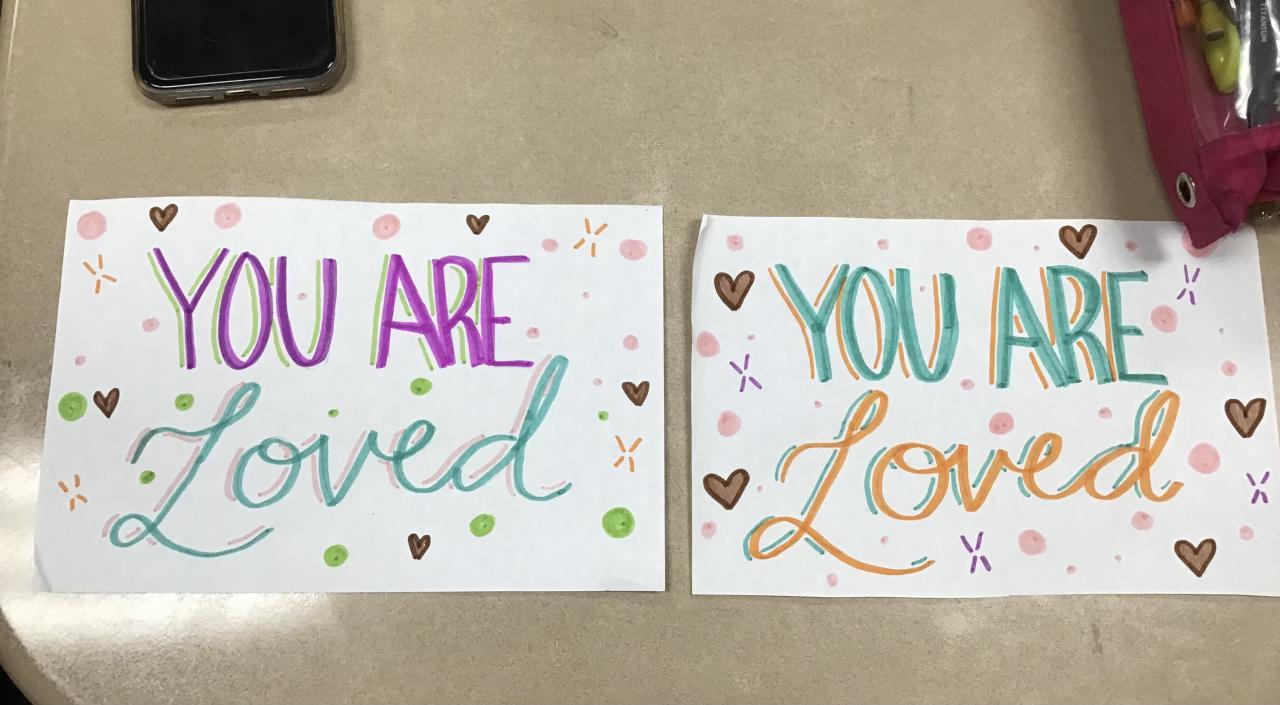 YOU ARE
Loved
YOU ARE
Loved